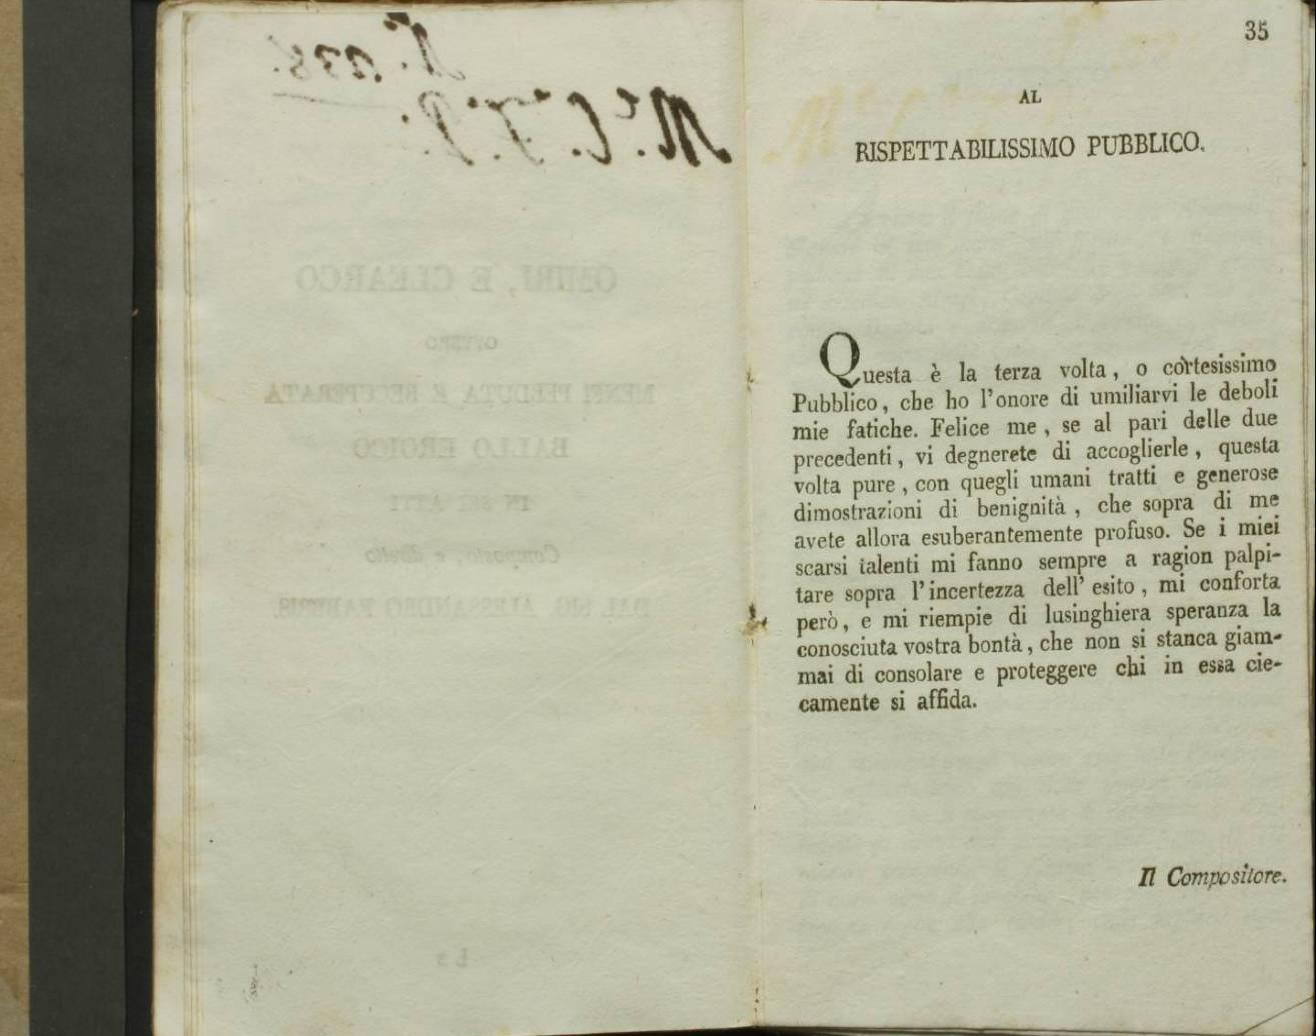 35
AL
RISPETTABILISSIMO PUBBLICO.
Questa è la terza volta, o cortesissimo
Pubblico, che ho l'onore di umiliarvi le deboli
mie fatiche. Felice me, se al pari delle due
precedenti, vi degnerete di accoglierle, questa
volta pure, con quegli umani tratti e generose
dimostrazioni di benignità, che sopra di me
avete allora esuberantemente profuso. Se i miei
scarsi talenti mi fanno sempre a ragion palpi-
tare sopra l'incertezza dell' esito, mi conforta
però, e mi riempie di lusinghiera speranza la
conosciuta vostra bontà, che non si stanca giam-
mai di consolare e proteggere chi in essa cie-
camente si affida.
Il Compositore.